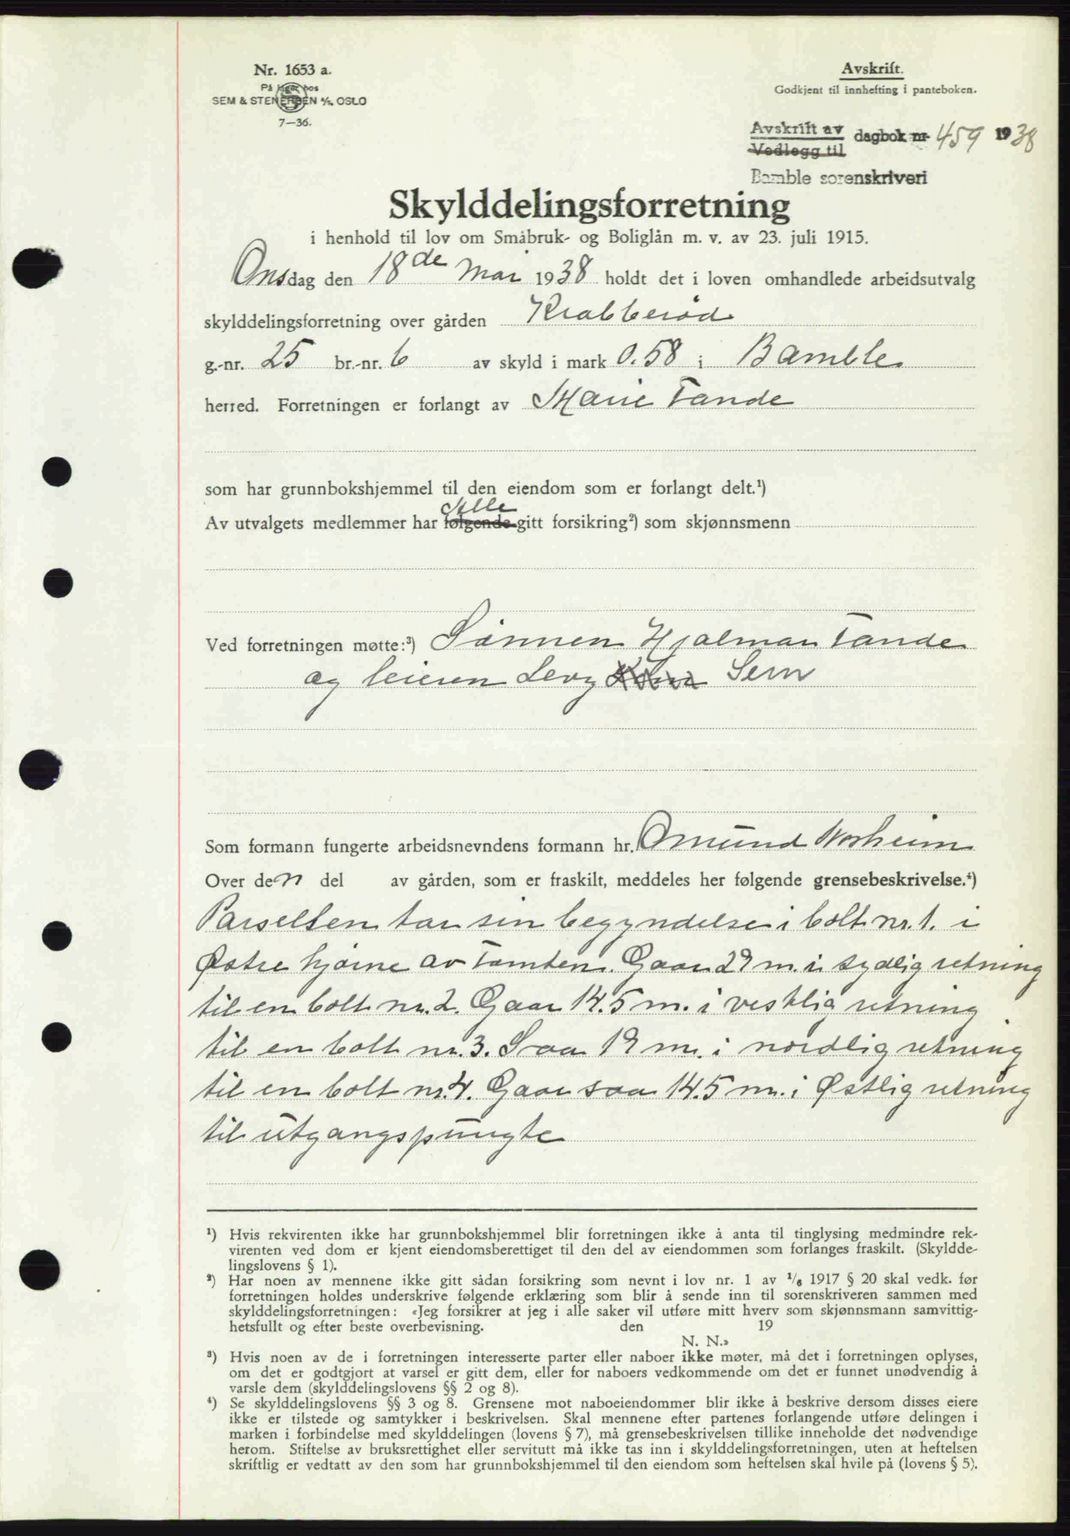 Nr. 1653 a.
På lager hos
SEM & STENERSEN A/S, OSLO
7—36.
Avskrift.
Godkjent til innhefting i panteboken.
Avskrift av
Vedlegg til
dagbok nr 459 1938
Bamble sorenskriveri
Skylddelingsforretning
i henhold til lov om Småbruk- og Boliglån m. v. av 23. juli 1915.
Onsdag den 18de Mai 1938 holdt det i loven omhandlede arbeidsutvalg
skylddelingsforretning over gården Krabberød
g.-nr. 25 br.-nr. 6 av skyld i mark 0.58 i Bamble
herred. Forretningen er forlangt av Marie Tande
som har grunnbokshjemmel til den eiendom som er forlangt delt.¹)
Av utvalgets medlemmer har følgende alle gitt forsikring²) som skjønnsmenn
Ved forretningen møtte:³) Sønnen Hjalmar Tande
og leieren Levy Sem
Som formann fungerte arbeidsnevndens formann hr. Omund
Over den del av gården, som er fraskilt, meddeles her følgende grensebeskrivelse.⁴)
Parsellen tar sin begyndelse i bolt nr. 1. i
Østre hjørne av Tomten. Gaar 29 m. i sydlig retning
til en bolt nr. 2. Gaar 14.5 m. i vestlig retning
til en bolt nr. 3. Saa 19 m. i nordlig retning
til en bolt nr. 4. Gaar saa 14.5 m. i Østlig retning
til utgangspungte
¹) Hvis rekvirenten ikke har grunnbokshjemmel blir forretningen ikke å anta til tinglysing medmindre rek-
virenten ved dom er kjent eiendomsberettiget til den del av eiendommen som forlanges fraskilt. (Skyldde-
lingslovens § 1).
²) Har noen av mennene ikke gitt sådan forsikring som nevnt i lov nr. 1 av 1/6 1917 § 20 skal vedk. før
forretningen holdes underskrive følgende erklæring som blir å sende inn til sorenskriveren sammen med
skylddelingsforretningen: «Jeg forsikrer at jeg i alle saker vil utføre mitt hverv som skjønnsmann samvittig-
hetsfullt og efter beste overbevisning. den 19
N. N.»
³) Hvis noen av de i forretningen interesserte parter eller naboer ikke møter, må det i forretningen oplyses,
om det er godtgjort at varsel er gitt dem, eller for naboers vedkommende om det er funnet unødvendig å
varsle dem (skylddelingslovens §§ 2 og 8).
⁴) Se skylddelingslovens §§ 3 og 8. Grensene mot naboeiendommer blir ikke å beskrive dersom disses eiere
ikke er tilstede og samtykker i beskrivelsen. Skal mennene efter partenes forlangende utføre delingen i
marken i forbindelse med skylddelingen (lovens § 7), må grensebeskrivelsen tillike inneholde det nødvendige
herom. Stiftelse av bruksrettighet eller servitutt må ikke tas inn i skylddelingsforretningen, uten at heftelsen
skriftlig er vedtatt av den som har grunnbokshjemmel til den eiendom som heftelsen skal hvile på (lovens § 5).